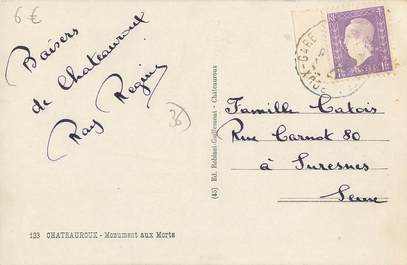 6€
Baisers
de Chateauroux
Ray Regine
36
Famille Catois
Rue Carnot 80
à Suresnes
Seine
(45) Ed. Robinet-Guillemont - Châteauroux
133 CHATEAUROUX - Monument aux Morts